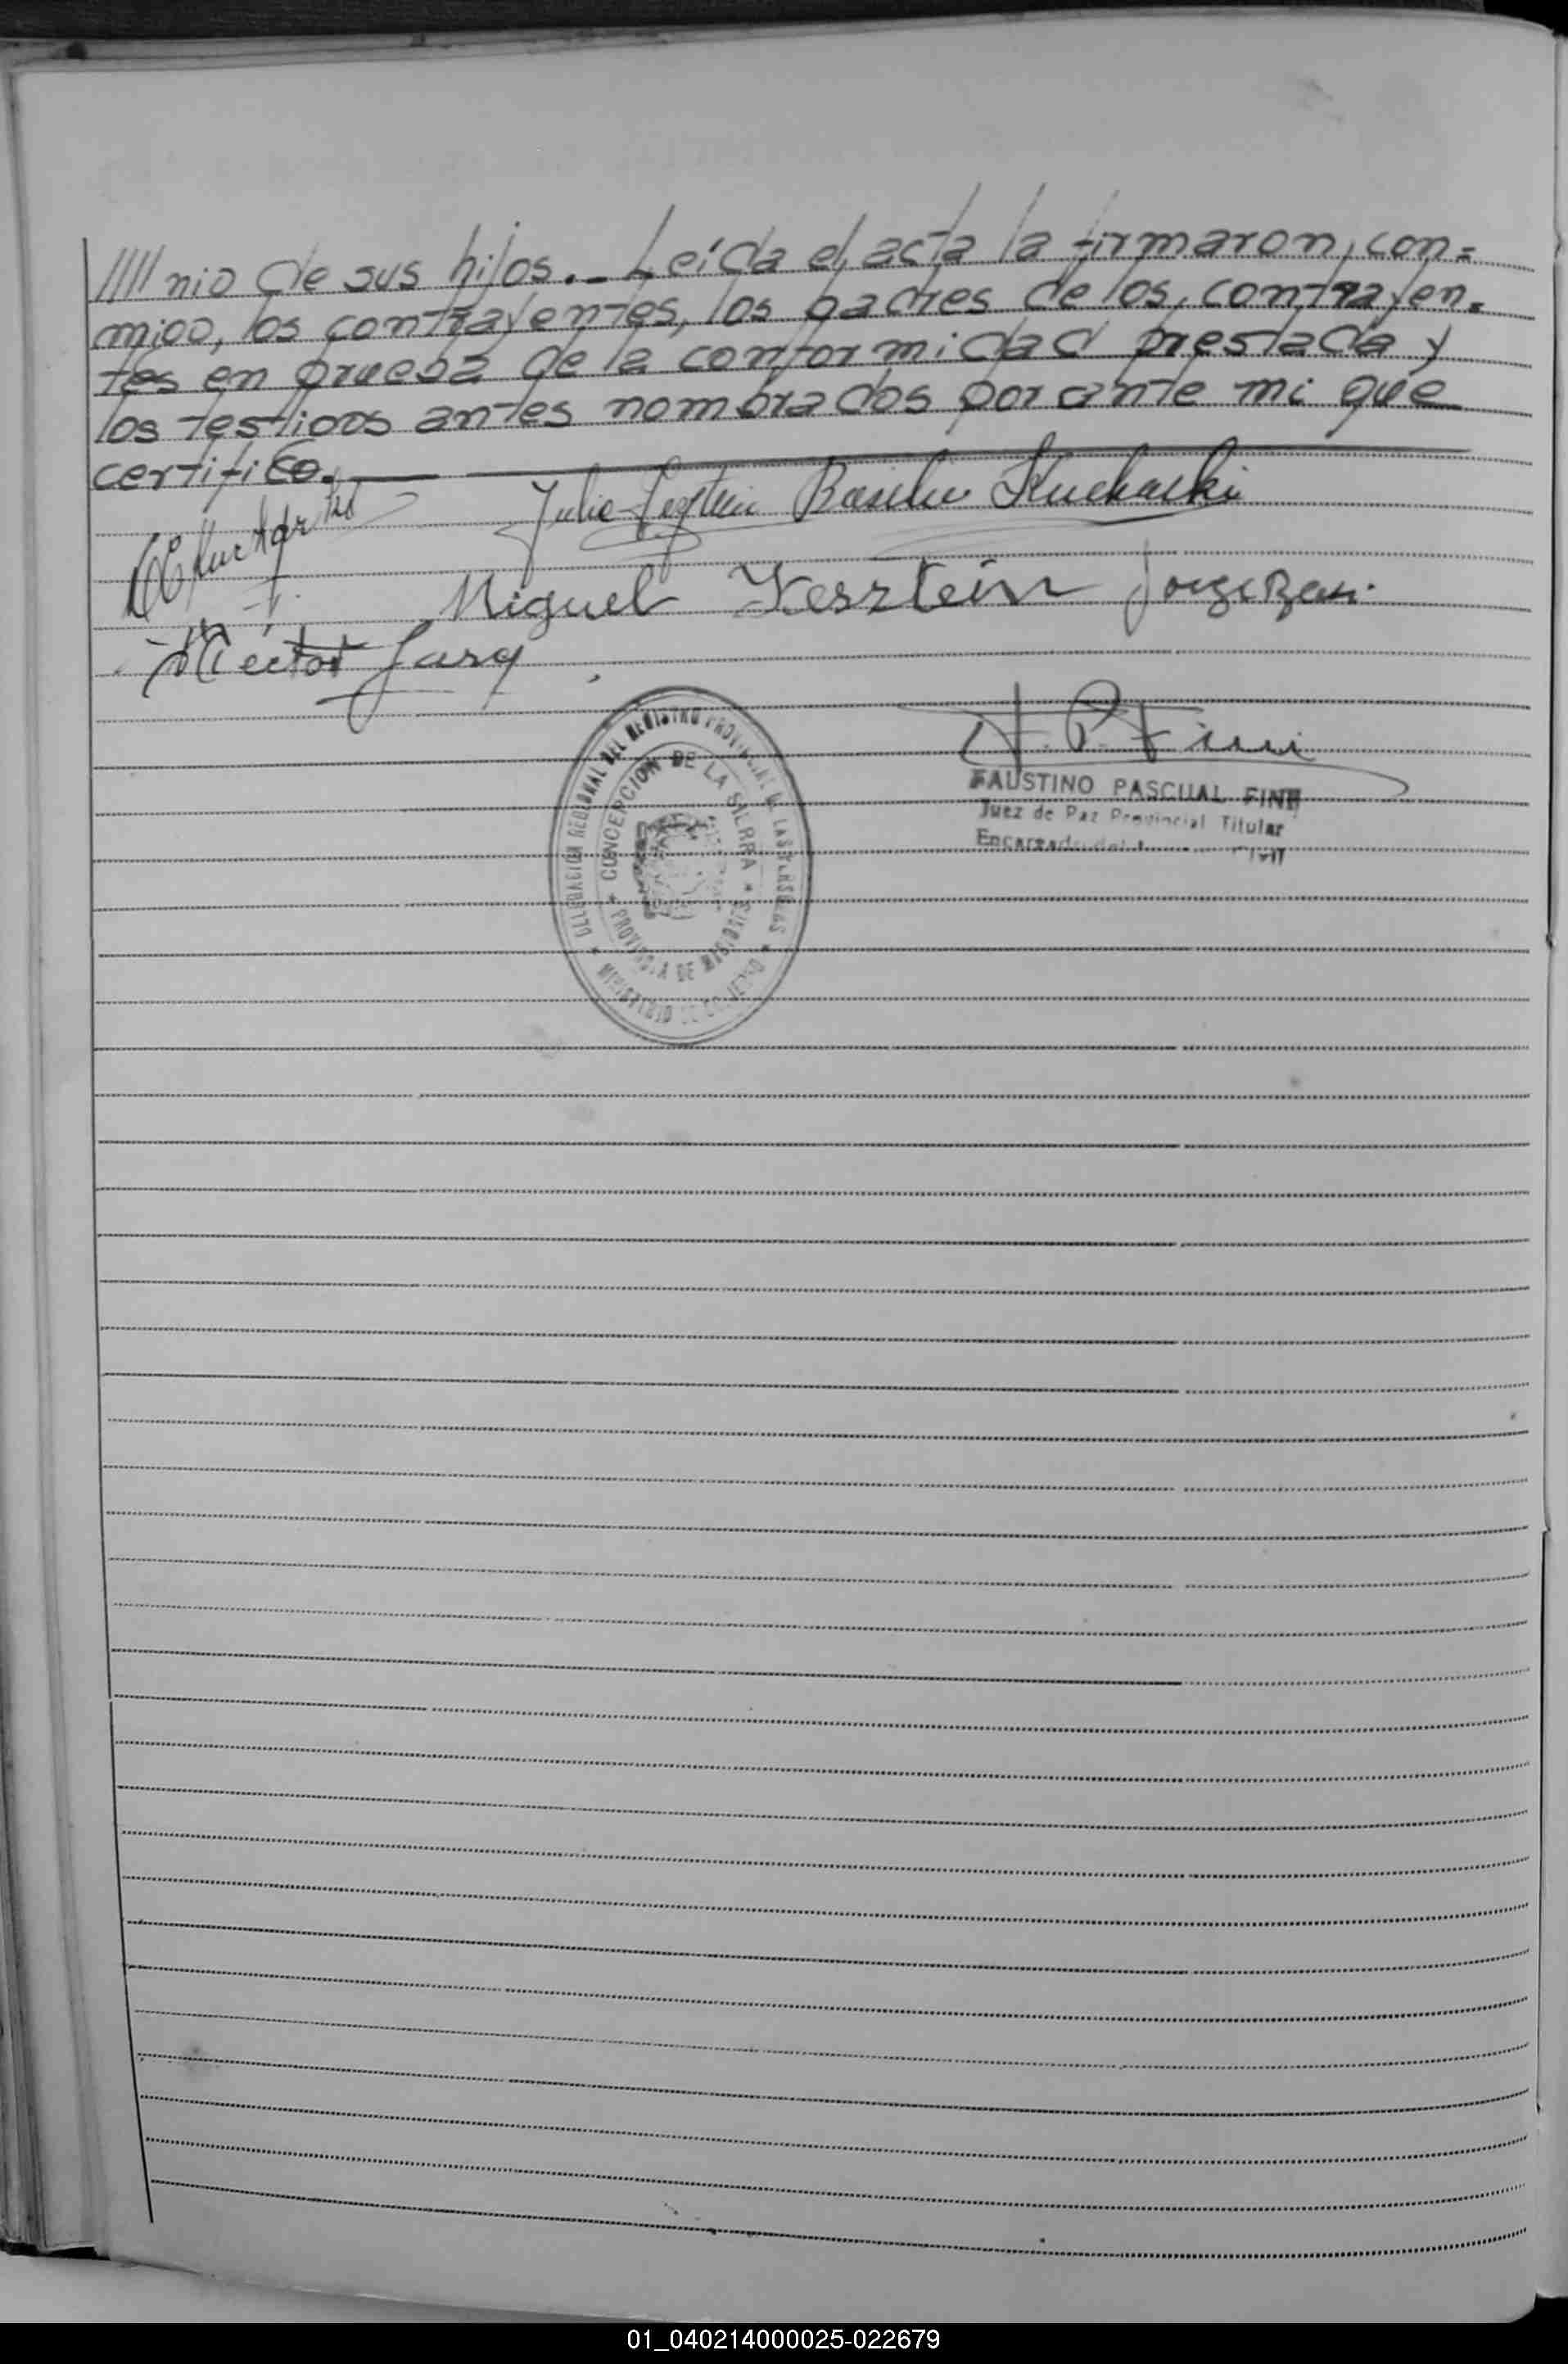 //// nio de sus hijos._ Leída el acta la firmaron, con=
migo, los contrayentes, los padres de los, contrayen=
tes en prueba de la conformidad prestada y
los testigos antes nombrados por ante mi que
certifico.
Basilio Kuchaski
Miguel Kesztein Jorge
Hector
DELEGACION REGIONAL DEL REGISTRO PROVINCIAL DE LAS PERSONAS * MINISTERIO DE GOBIERNO *
CONCEPCION DE LA SIERRA * PROVINCIA DE MISIONES *
F. P. Fini
FAUSTINO PASCUAL FINI
Juez de Paz Provincial Titular
Encargado del Civil
01_040214000025-022679